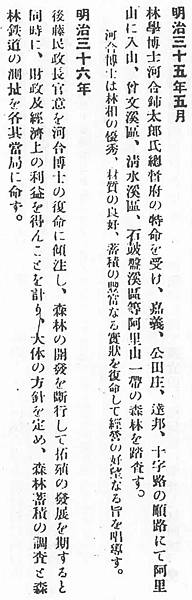 明治三十五年五月
林學博士河合鈰太郎氏總督府の特命を受け、嘉義、公田庄、達邦、十字路の順路にて阿里
山に入山、曾文溪區、淸水溪區、石鼓盤溪區等阿里山一帶の森林を踏査す。
河合博士は林相の優秀、材質の良好、蓄積の豐富なる實狀を復命して經營の好望なる旨を唱導す。
明治三十六年
後藤民政長官意を河合博士の復命に傾注し、森林の開發を斷行して拓殖の發展を期すると
同時に、財政及經濟上の利益を得んことを計り、大体の方針を定め、森林蓄積の調査と森
林鉄道の測量を各其當局に命す。